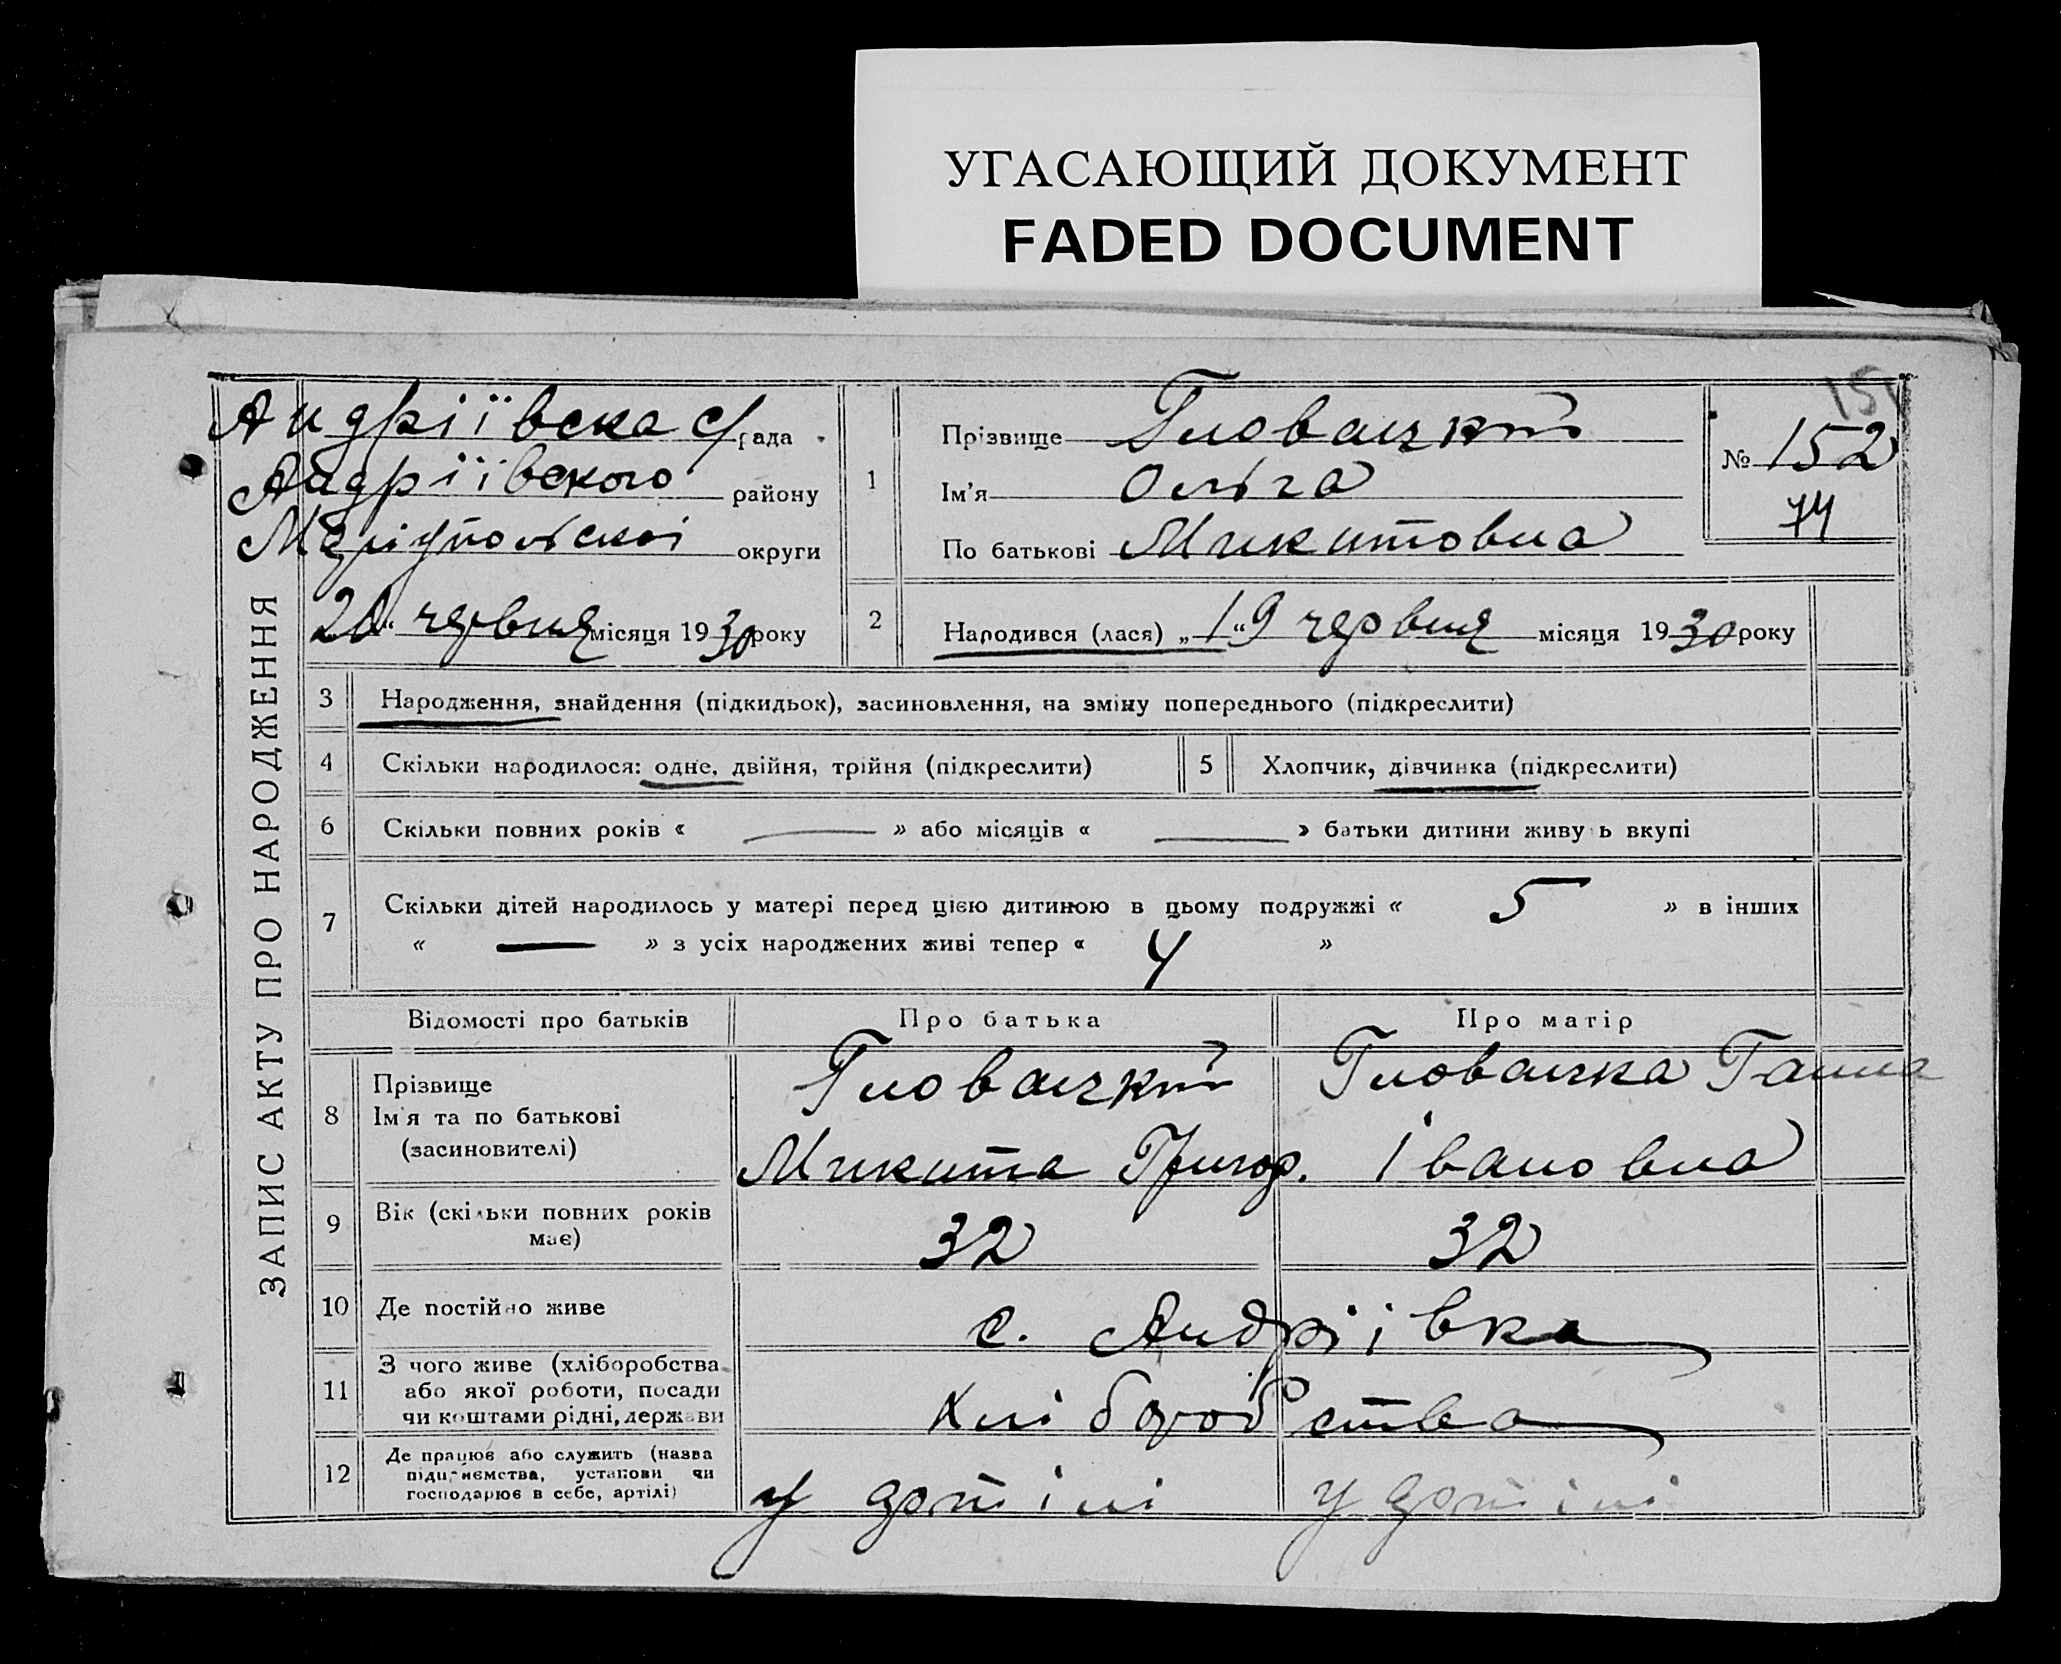 УГАСАЮЩИЙ ДОКУМЕНТ
FADED DOCUMENT
ЗАПИС АКТУ ПРО НАРОДЖЕННЯ
Андріївска с/рада
Андріївского району
Маріупольскої округи
20 червня місяця 1930 року
1
Прізвище Гловацкий
Ім'я Ольга
По батькові Микитовна
151
№ 152
74
2 Народився (лася) „19“ червня місяця 1930 року
3 Народження, знайдення (підкидьок), засиновлення, на зміну попереднього (підкреслити)
4 Скільки народилося: одне, двійня, трійня (підкреслити) 5 Хлопчик, дівчинка (підкреслити)
6 Скільки повних років « — » або місяців « — » батьки дитини живу ь вкупі
7 Скільки дітей народилось у матері перед цією дитиною в цьому подружжі « 5 » в інших
« — » з усіх народжених живі тепер « 4 »
Відомості про батьків Про батька Про матір
8 Прізвище
Ім'я та по батькові
(засиновителі)
Гловацкий
Микита Григор.
Гловацка Ганна
Івановна
9 Вік (скільки повних років
має)
32 32
10 Де постійно живе с. Андріівка
11 З чого живе (хліборобства
або якої роботи, посади
чи коштами рідні, держави
хліборобства
12 Де працює або служить (назва
підприємства, установи чи
господарює в себе, артілі)
у артілі у артілі